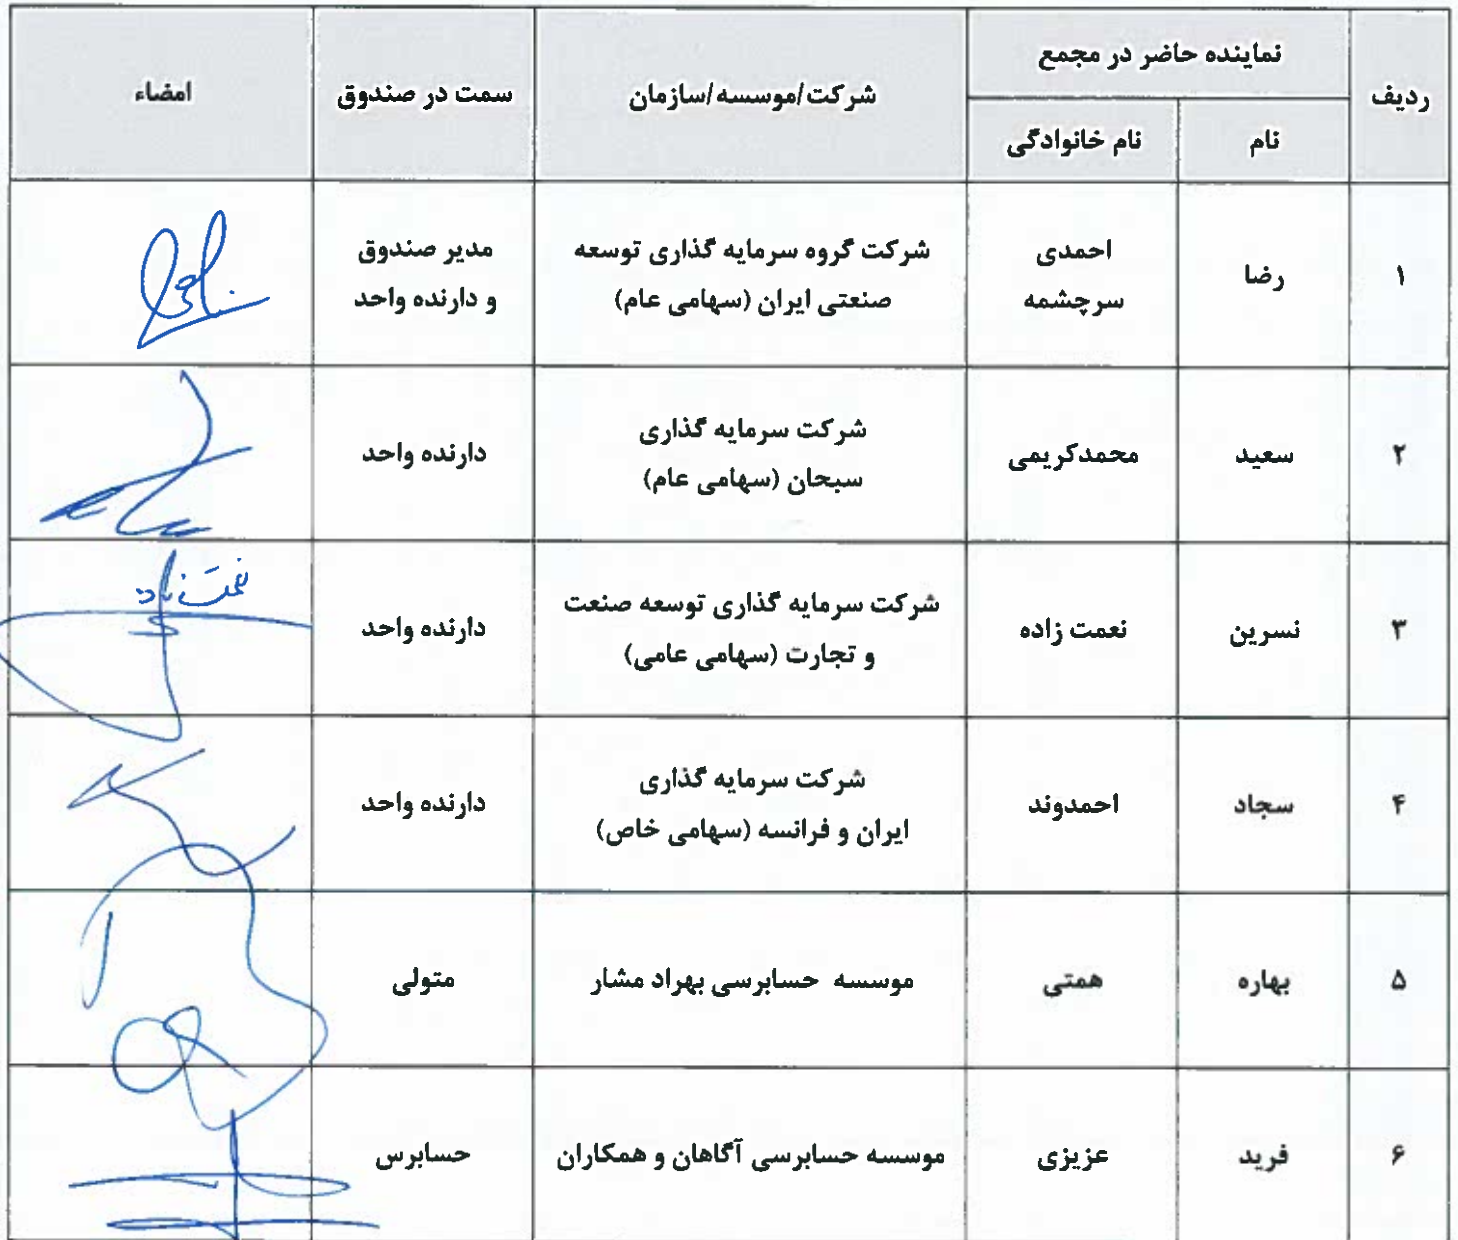 ردیف
نماینده حاضر در مجمع
نام
نام خانوادگی
شرکت/موسسه/سازمان
سمت در صندوق
امضاء
۱
رضا
احمدی
سرچشمه
شرکت گروه سرمایه گذاری توسعه
صنعتی ایران (سهامی عام)
مدیر صندوق
و دارنده واحد
۲
سعید
محمدکریمی
شرکت سرمایه گذاری
سبحان (سهامی عام)
دارنده واحد
۳
نسرین
نعمت زاده
شرکت سرمایه گذاری توسعه صنعت
و تجارت (سهامی عامی)
دارنده واحد
۴
سجاد
احمدوند
شرکت سرمایه گذاری
ایران و فرانسه (سهامی خاص)
دارنده واحد
۵
بهاره
همتی
موسسه حسابرسی بهراد مشار
متولی
۶
فرید
عزیزی
موسسه حسابرسی آگاهان و همکاران
حسابرس